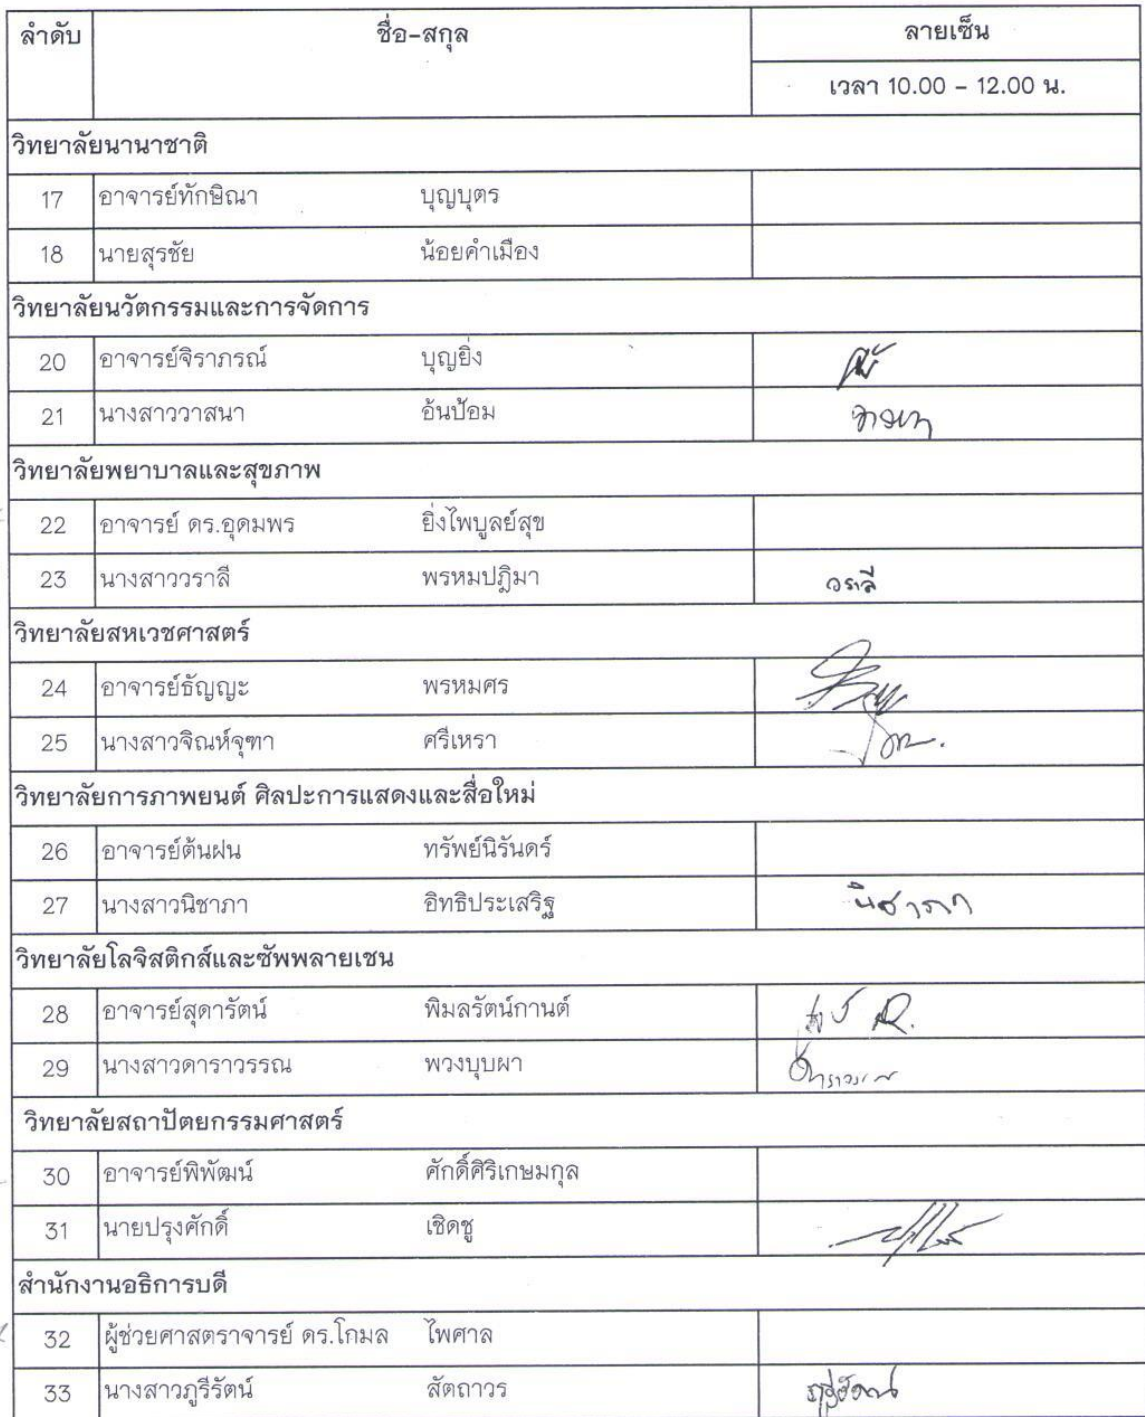 ลำดับ ชื่อ-สกุล ลายเซ็น
เวลา 10.00 - 12.00 น.
วิทยาลัยนานาชาติ
17 อาจารย์ทักษิณา บุญบุตร
18 นายสุรชัย น้อยคำเมือง
วิทยาลัยนวัตกรรมและการจัดการ
20 อาจารย์จิราภรณ์ บุญยิ่ง
21 นางสาววาสนา อ้นป้อม วาสนา
วิทยาลัยพยาบาลและสุขภาพ
22 อาจารย์ ดร.อุดมพร ยิ่งไพบูลย์สุข
23 นางสาววราลี พรหมปฎิมา วราลี
วิทยาลัยสหเวชศาสตร์
24 อาจารย์ธัญญะ พรหมศร
25 นางสาวจิณห์จุฑา ศรีเหรา
วิทยาลัยการภาพยนต์ ศิลปะการแสดงและสื่อใหม่
26 อาจารย์ต้นฝน ทรัพย์นิรันดร์
27 นางสาวนิชาภา อิทธิประเสริฐ นิชาภา
วิทยาลัยโลจิสติกส์และซัพพลายเชน
28 อาจารย์สุดารัตน์ พิมลรัตน์กานต์
29 นางสาวดาราวรรณ พวงบุบผา
วิทยาลัยสถาปัตยกรรมศาสตร์
30 อาจารย์พิพัฒน์ ศักดิ์ศิริเกษมกุล
31 นายปรุงศักดิ์ เชิดชู
สำนักงานอธิการบดี
32 ผู้ช่วยศาสตราจารย์ ดร.โกมล ไพศาล
33 นางสาวภูรีรัตน์ สัตถาวร ภูรีรัตน์